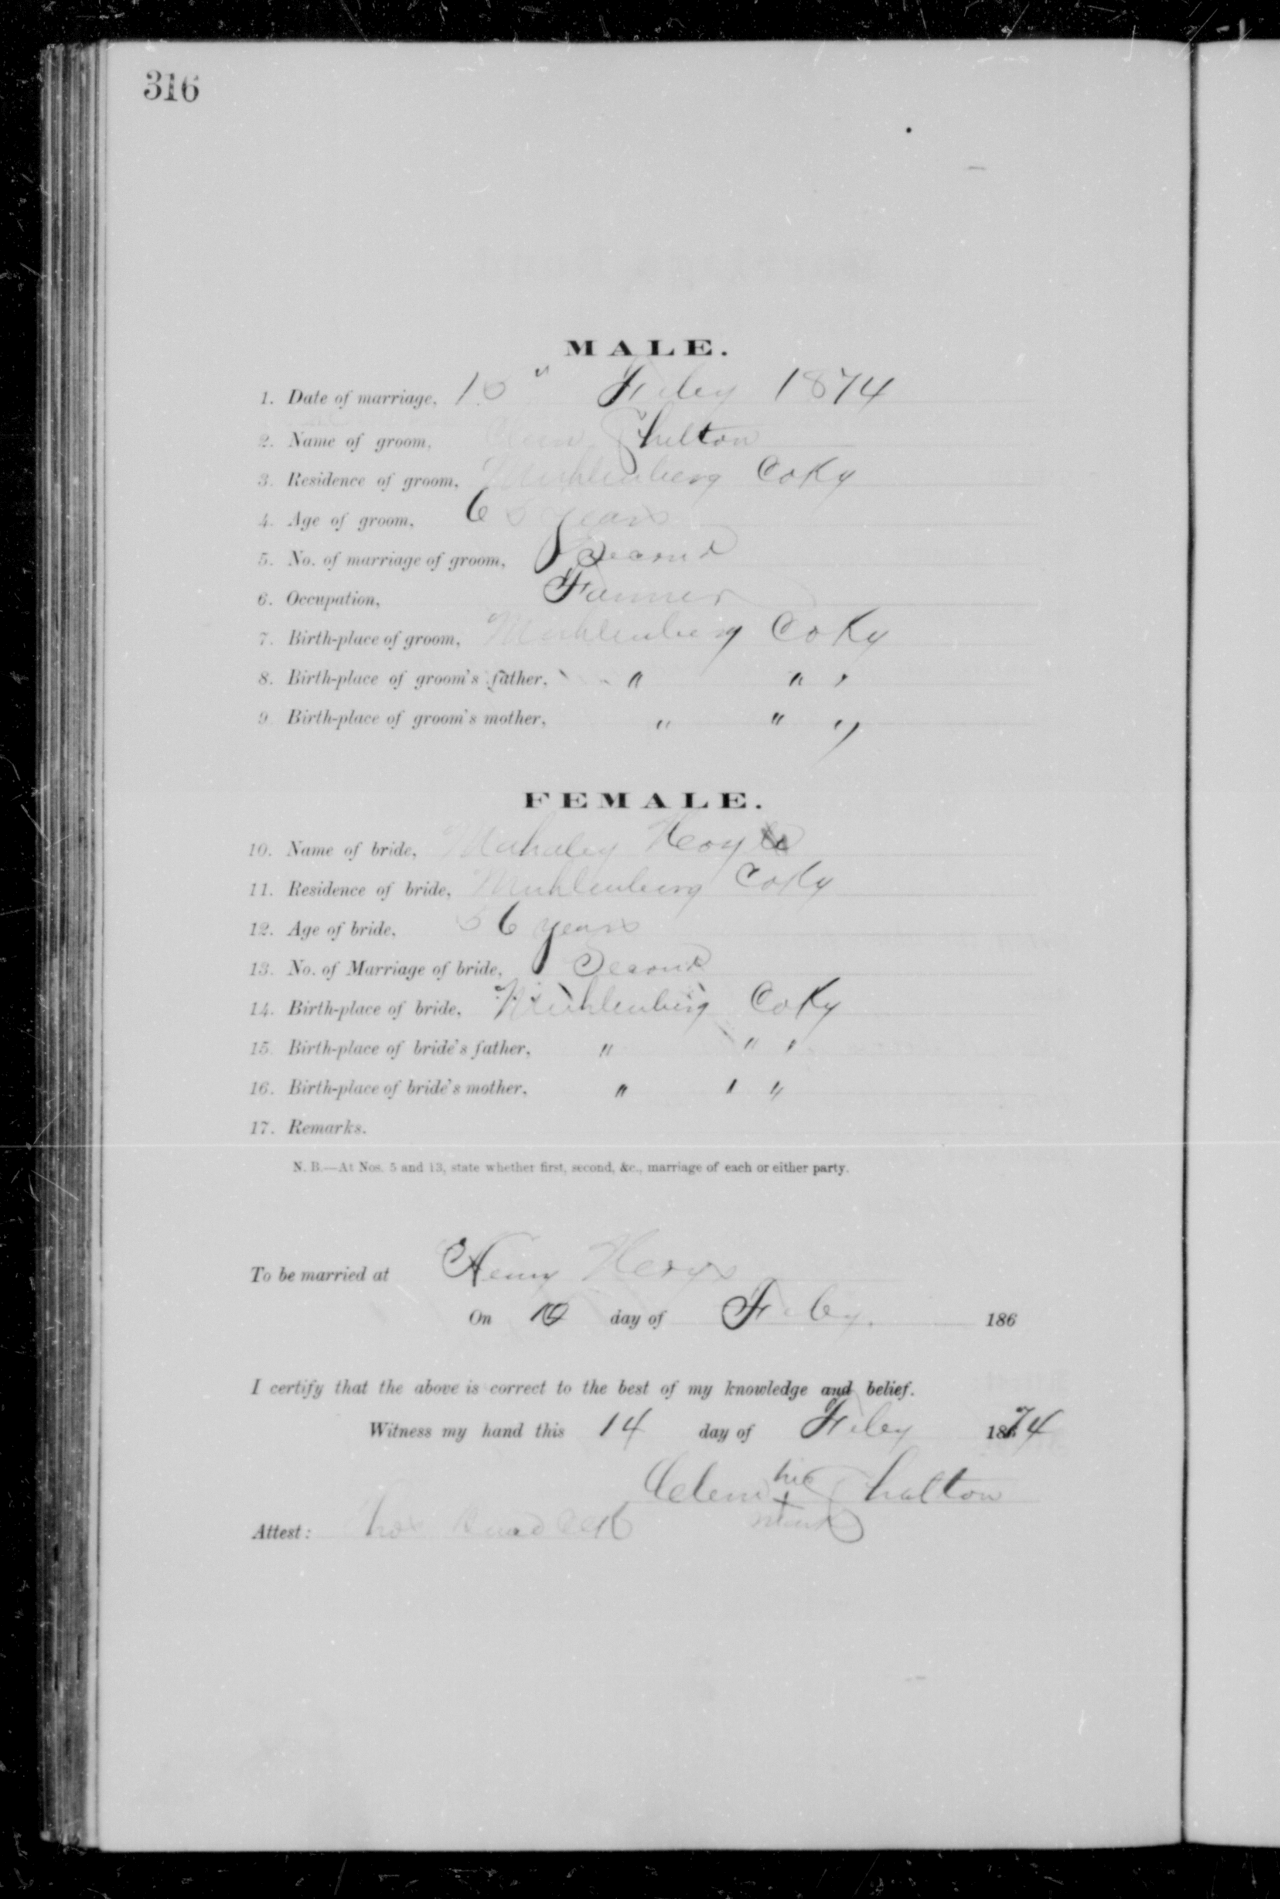 316
MALE.
1. Date of marriage, 15" Feby 1874
2. Name of groom, Clem Shelton
3. Residence of groom, Muhlenberg Co Ky
4. Age of groom, 65 years
5. No. of marriage of groom, Second
6. Occupation, Farmer
7. Birth-place of groom, Muhlenberg Co Ky
8. Birth-place of groom's father, " " "
9. Birth-place of groom's mother, " " "
FEMALE.
10. Name of bride, Mahaley
11. Residence of bride, Muhlenberg Co Ky
12. Age of bride, 56 years
13. No. of Marriage of bride, Second
14. Birth-place of bride, Muhlenberg Co Ky
15. Birth-place of bride's father, " " "
16. Birth-place of bride's mother, " " "
17. Remarks.
N. B.—At Nos. 5 and 13, state whether first, second, &c., marriage of each or either party.
To be married at Henry
On day of Feby. 186
I certify that the above is correct to the best of my knowledge and belief.
Witness my hand this 14 day of Feby 1874
Clem his x mark Shelton
Attest: Thos